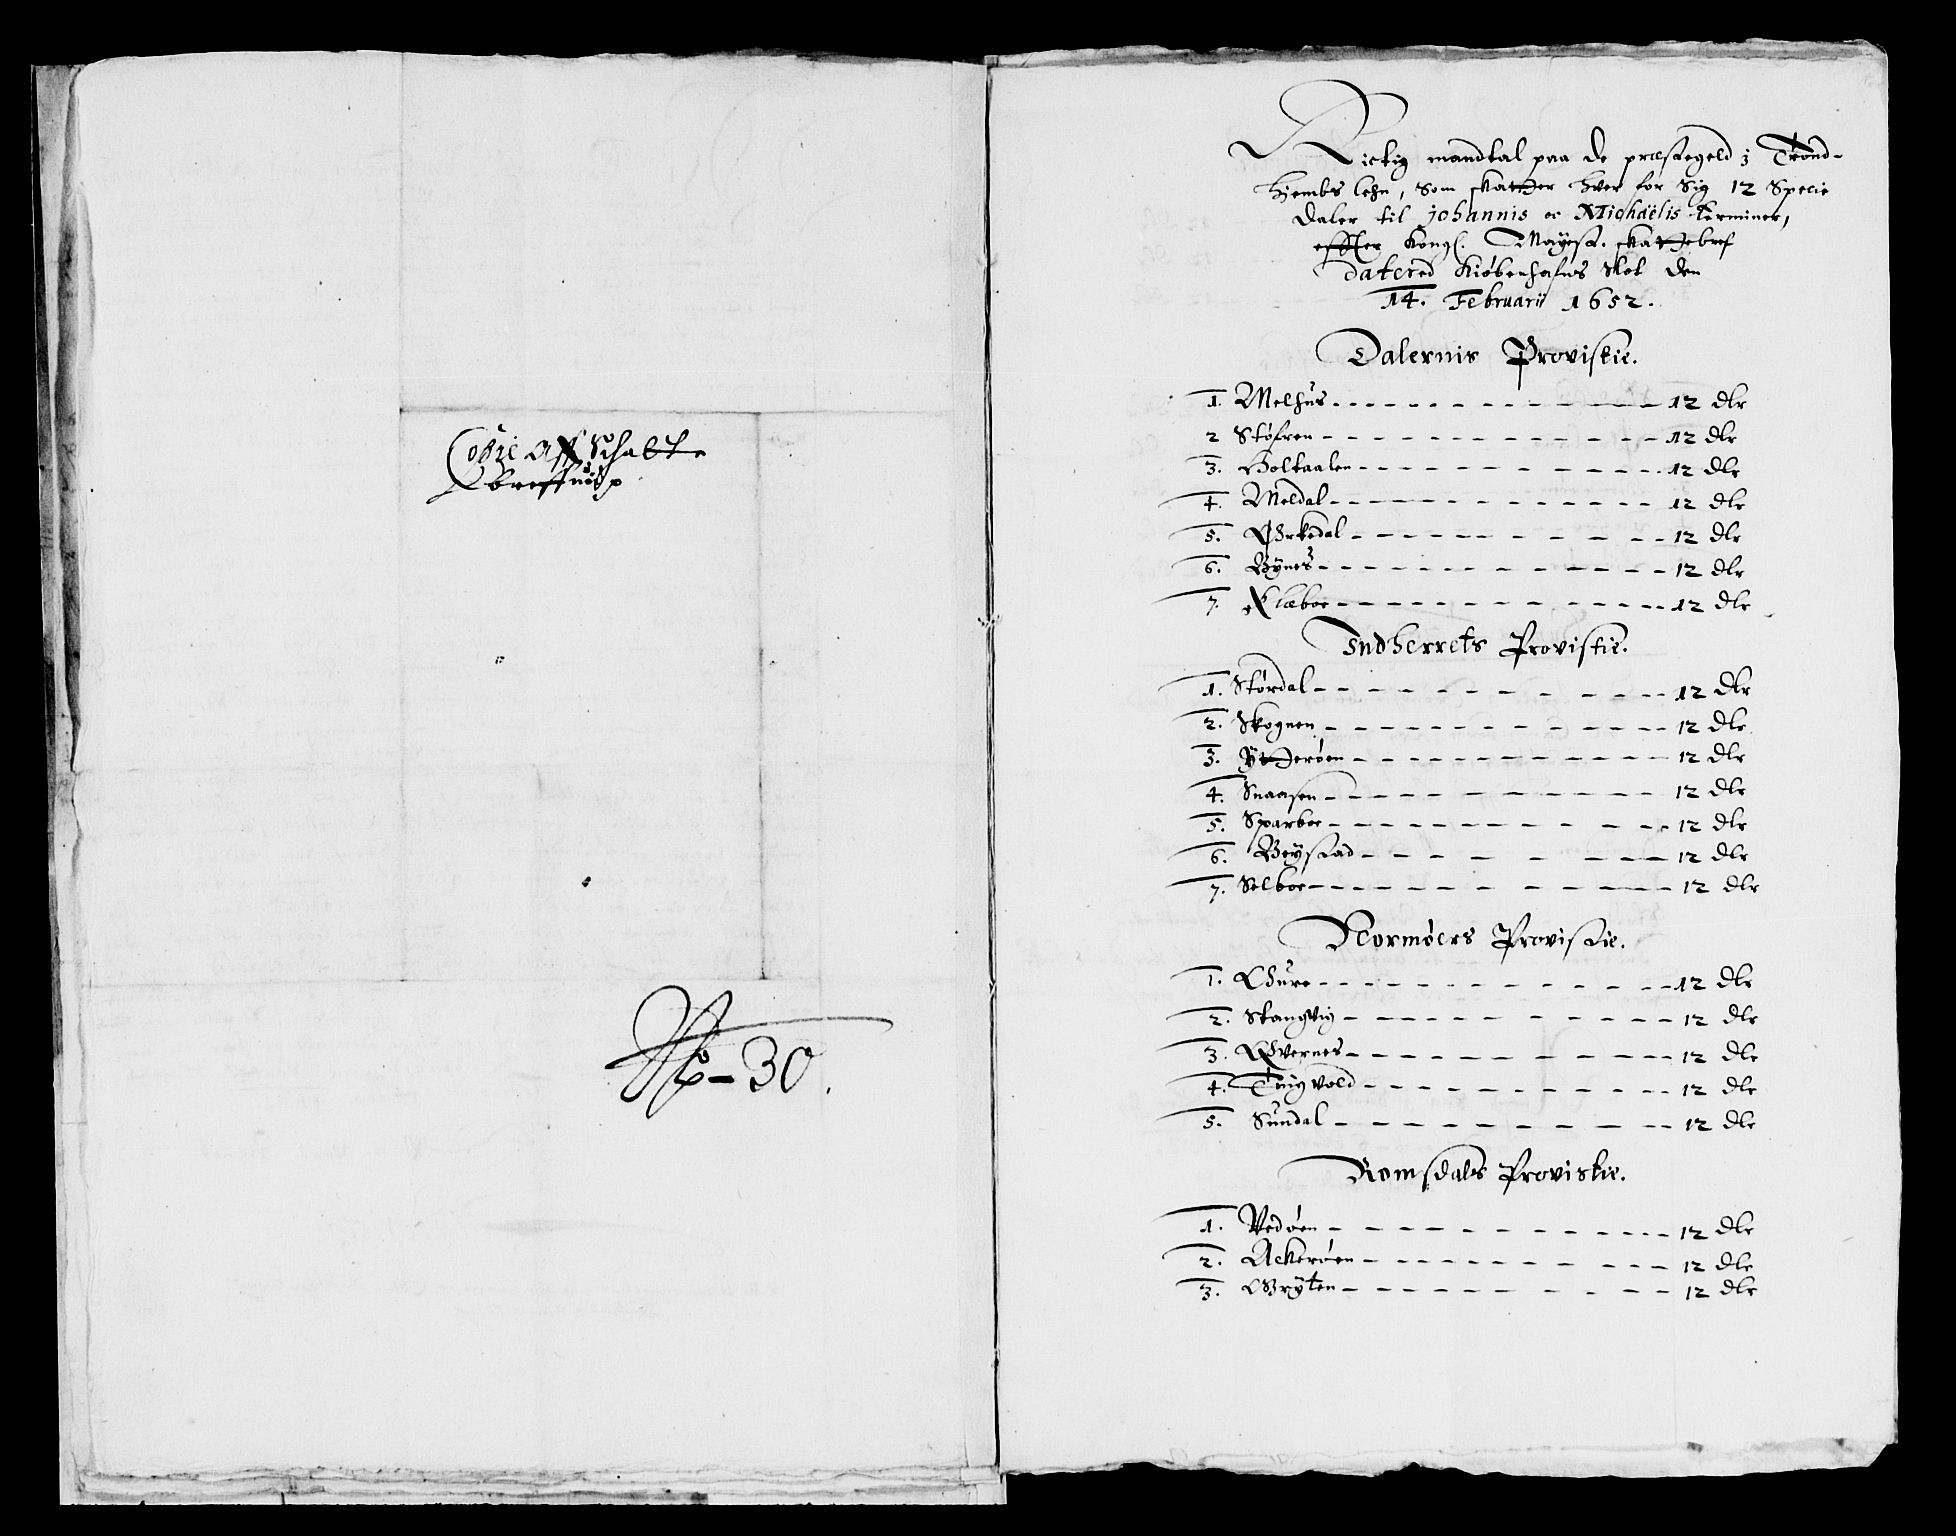 Copie Aff Schatte
breffued
No - 30.
Rictig mandtal paa de præstegeld i Trond-
hjembs lehn, som skatter hver for sig 12 Specie
daler til Johannis oc Michaëlis terminer,
effter Kongl. Mayest. skattebref
datered Kiøbenhafns Slot den
14. Februarii 1652.
Dalernis Provistie.
1. Melhus - 12 dlr
2 Støfren - 12 dlr
3. Holtaalen - 12 dlr
4. Meldal - 12 dlr
5. Ørkedal - 12 dlr
6. Bynes - 12 dlr
7. Klæboe - 12 dlr
Indherrets Provistie.
1. Størdal - 12 dlr
2. Skognen - 12 dlr
3. Ytterøen - 12 dlr
4. Snaasen - 12 dlr
5. Sparboe - 12 dlr
6. Beystad - 12 dlr
7. Selboe - 12 dlr
Normøers Provistie.
1. Øure - 12 dlr
2. Stangvig - 12 dlr
3. Qvernes - 12 dlr
4. Tingvold - 12 dlr
5. Sundal - 12 dlr
Romsdals Provistie.
1. Vedøen - 12 dlr
2. Ackerøen - 12 dlr
3. Gryten - 12 dlr